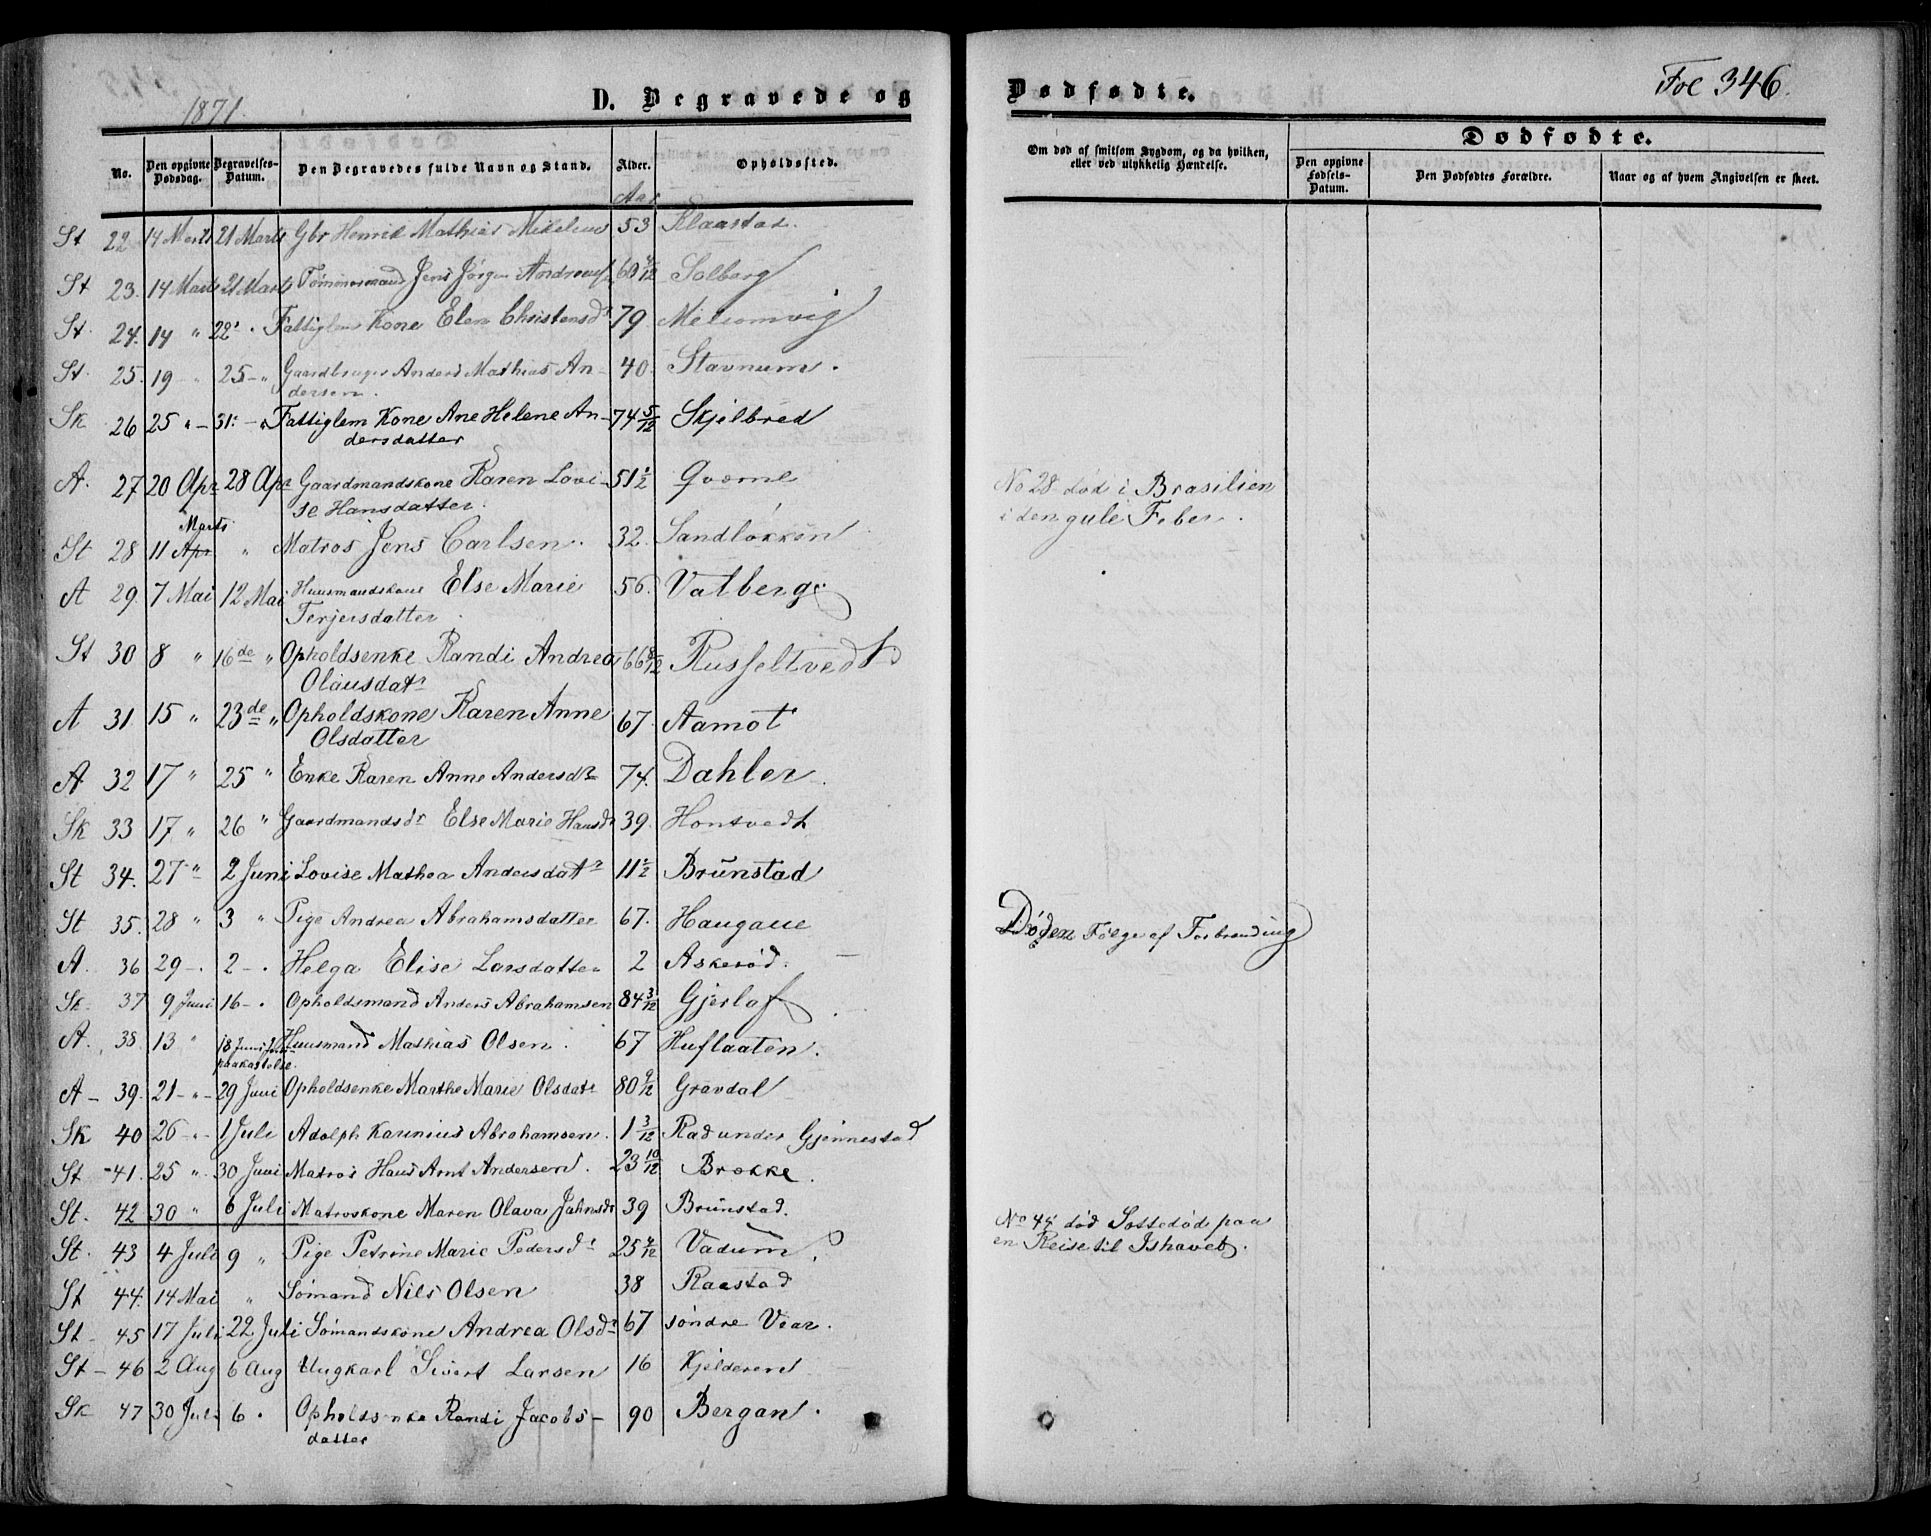 1871.
D. Begravede og
No.
Den opgivne Dødsdag.
Begravelses-Datum.
Den Begravedes fulde Navn og Stand.
Alder.
Opholdssted.
Aar
St 22 14 Marts 21 Marts Gbr Henrik Mathias Mikelsen 53 Klaastad.
St 23. 14 Marts 21 Marts Tømmermand Jens Jørgen Andreas 60 Solberg
St. 24. 14 " 22 " Fattiglem Kone Elen Christensdr 79 Melsomvig
St. 25. 19 " 25 - " Gaardbruger Anders Mathias An- 40. Stavnum.
dersen.
Sk 26 25 " - 31 - " Fattiglem Kone Ane Helene An- 74 5/12 Skjelbred
dersdatter
A. 27 20 Apr 28 Apr Gaardmandskone Karen Lovi- 51 1/2 Qverne
se Hansdatter.
Marts
St 28 11 Apr " Matros Jens Carlsen. 32. Sandløkken
A 29. 7 Mai 12 Mai Huusmandskone Else Marie 56. Valberg
Terjersdatter.
St 30 8 " 16de " Opholdsenke Randi Andrea 66 8/12 Russeltvedt
Olausdatr
A 31 15 " 23de " Opholdskone Karen Anne 67. Aamot
Olsdatter
A 32 17 " 25 " Enke Karen Anne Andersdr 74. Dahler.
Sk 33 17 " 26 " Gaardmandsdr Else Marie Hansdr 39. Hontvedt
St 34. 27 " 2 Juni Lovise Mathea Andersdatr 11 1/2 Brunstad
St 35. 28 " 3 " Pige Andrea Abrahamsdatter 67. Haugane
A. 36 29 - . 2 - . Helga Elise Larsdatter 2 Askerød.
Sk. 37 9 Juni 16 - . Opholdsmand Anders Abrahamsen 84 3/12 Gjerla
A. 38 13 " 18 Juni Huusmand Mathias Olsen. 67 Huflaaten.
A - 39. 21 - " - 29 Juni Opholdsenke Marthe Marie Olsdatr 80 9/12 Gravdal
Sk 40 26 - . - 1 Juli Adolph Karinius Abrahamsen. 1 3/12 Rad under Gjennestad
St - 41. 25 " . 30 Juni Matros Hans Arnt Andersen. 23 10/12 Brekke.
St. 42 30 " 6 Juli Matroskone Maren Olava Jahnsdr 39 Brunstad.
St. 43 4 Juli 9 " Pige Petrine Marie Pedersdr 25 4/12 Vadum.
St 44. 14 Mai " Sømand Nils Olsen 38 Raastad
St - 45 17 Juli 22 Juli Sømandskone Andrea Olsdr 67 søndre Vear.
St - 46 2 Aug 6 Aug Ungkarl Sivert Larsen 16 Kjelderen
Sk 47 30 Juli 6 . Opholdsenke Randi Jacobs- 90 Bergan.
datter
Dødfødte.
Fol 346.
Om død af smitsom Sygdom, og da hvilken, eller ved ulykkelig Hændelse.
Dødfødte.
Den opgivne Fødsels-Datum.
Den Dødfødtes Forældre.
Naar og af hvem Angivelsen er skeet.
No 28 død i Brasilien
i den gule Feber.
Døden Følge af Forbrænding
No 44 død Sottedød paa
en Reise til Ishavet.